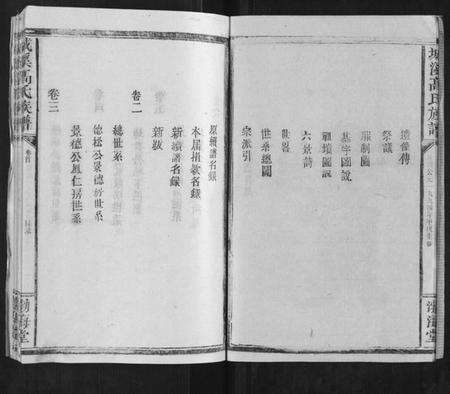 城溪高氏族譜
渤海堂
遺像傳
祭議
服制圖
基宇圖說
祖墳圖說
六景詩
世畧
世系總圖
宗派引
原續譜名錄
本屆捐欵名錄
新續譜名錄
新跋
卷二
總世系
德松公景德房世系
景德公鳳仁房世系
卷三
城溪高氏族譜
卷首
目錄
渤海堂